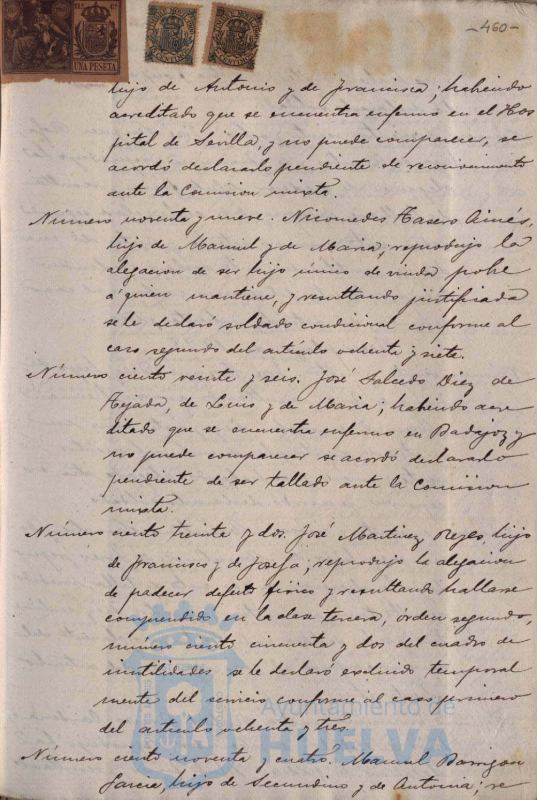 -460-
UNA PESETA
hijo de Antonio y de Francisca; habiendo
acreditado que se encuentra enfermo en el Hos
pital de Sevilla, y no puede comparecer, se
acordó declararlo pendiente de reconocimiento
ante la Comision mixta.
Número noventa y nueve. Nicomedes Tasero
hijo de Manuel y de Maria; reprodujo la
alegacion de ser hijo único de viuda pobre
á quien mantiene, y resultando justificada
se le declaró soldado condicional conforme al
caso segundo del artículo ochenta y siete.
Número ciento veinte y seis. José Salcedo Diez de
Tejada, de Luis y de Maria; habiendo acre
ditado que se encuentra enfermo en Badajoz y
no puede comparecer se acordó declararlo
pendiente de ser tallado ante la Comision
mixta.
Número ciento treinta y dos. José Martinez Reyes, hijo
de Francisco y de Josefa; reprodujo la alegacion
de padecer defecto físico y resultando hallarse
comprendido en la clase tercera, órden segundo,
número ciento cincuenta y dos del cuadro de
inutilidades se le declaró excluido temporal
mente del servicio conforme al caso primero
del artículo ochenta y tres.
Número ciento noventa y cuatro. Manuel Barrigon
Garcia, hijo de Secundino y de Antonia; re
Ayuntamiento de
HUELVA